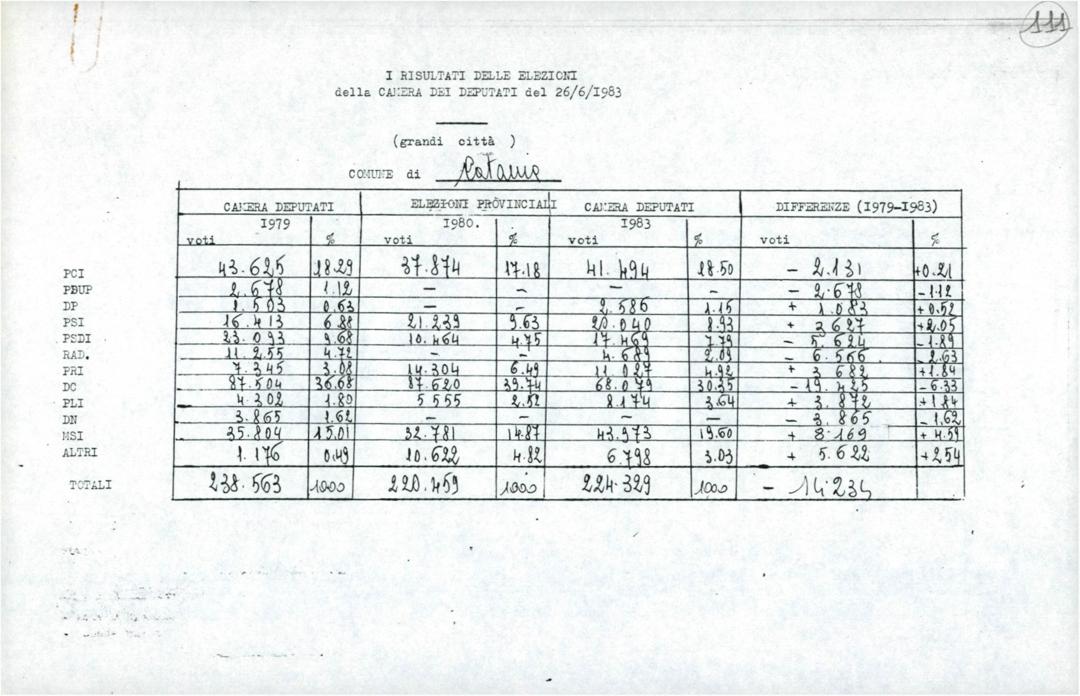 111
I RISULTATI DELLE ELEZIONI
della CAMERA DEI DEPUTATI del 26/6/I983
(grandi città )
COMUNE di Catania
CAMERA DEPUTATI ELEZIONI PROVINCIALI CAMERA DEPUTATI DIFFERENZE (I979-I983)
I979 I980. I983
voti % voti % voti % voti %
PCI 43.625 18.29 37.874 17.18 41.494 18.50 - 2.131 +0.21
PDUP 2.678 1.12 - - - - - 2.678 -1.12
DP 1.503 0.63 - - 2.586 1.15 + 1.083 +0.52
PSI 16.413 6.88 21.239 9.63 20.040 8.93 + 3627 +2.05
PSDI 23.093 9.68 10.464 4.75 17.469 7.79 - 5.624 -1.89
RAD. 11.255 4.72 - - 4.689 2.09 - 6.566 -2.63
PRI 7.345 3.08 14.304 6.49 11.027 4.92 + 3682 +1.84
DC 87.504 36.68 87.620 39.74 68.079 30.35 -19.425 -6.33
PLI 4.302 1.80 5555 2.52 8.174 3.64 + 3.872 +1.84
DN 3.865 1.62 - - - - - 3.865 -1.62
MSI 35.804 15.01 32.781 14.87 43.973 19.60 + 8.169 +4.59
ALTRI 1.176 0.49 10.622 4.82 6.798 3.03 + 5.622 +2.54
TOTALI 238.563 1000 220.459 1000 224.329 1000 - 14.234